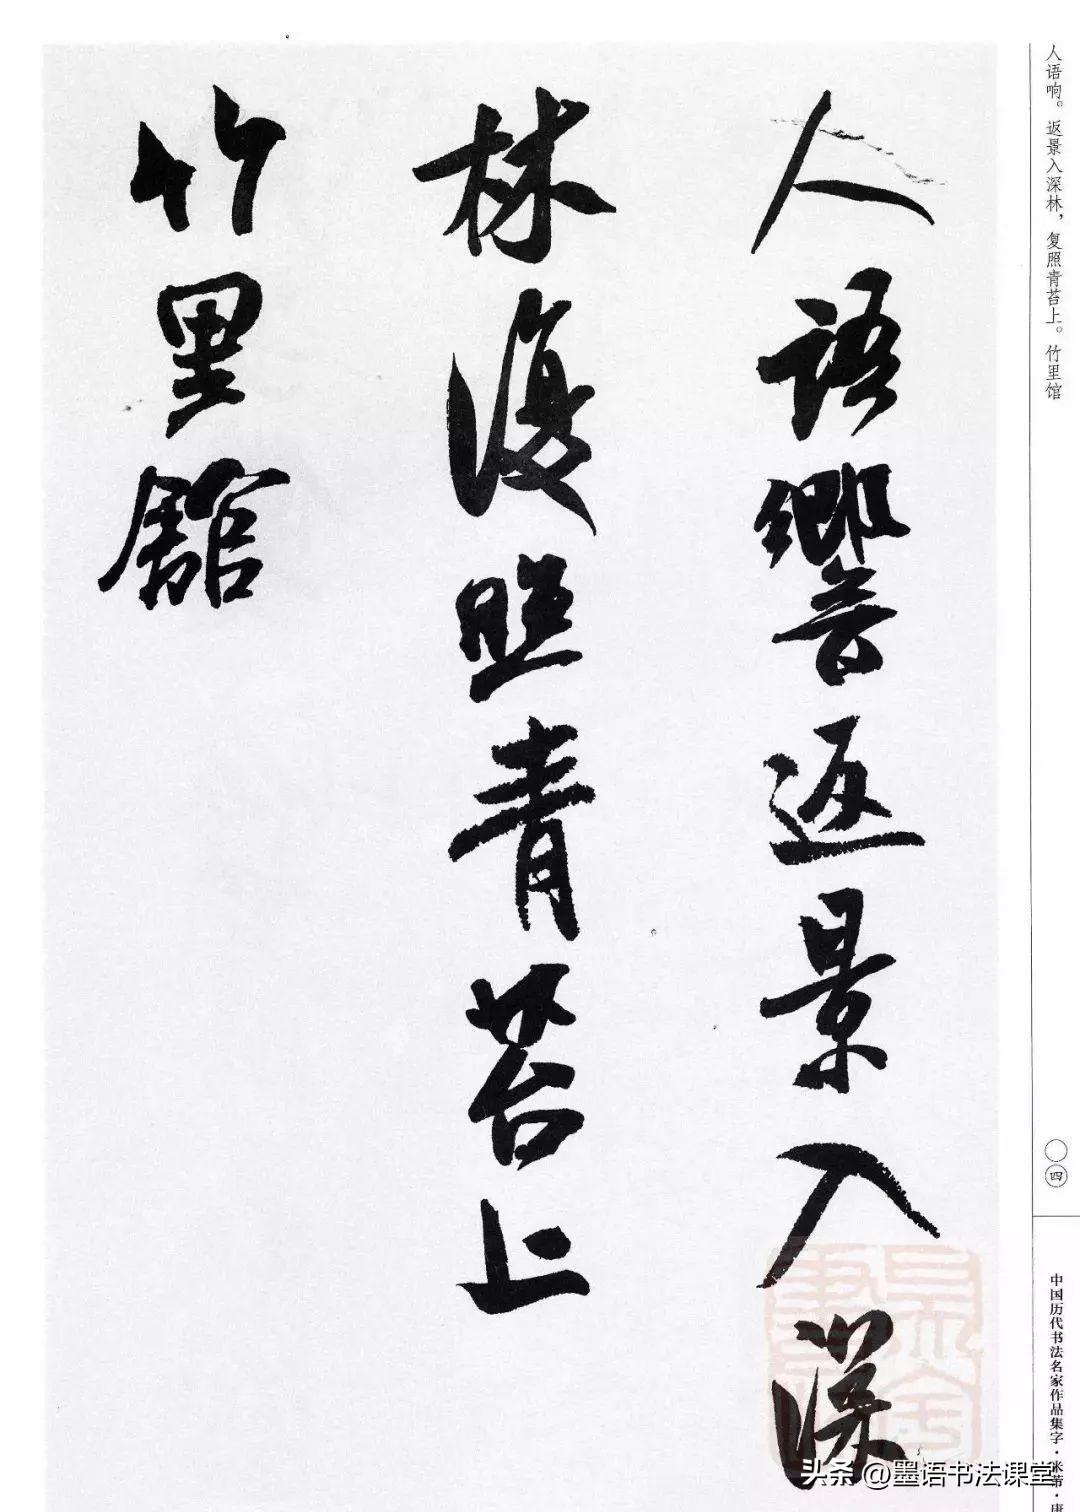 人語響返景入深
林復照青苔上
竹里館
人语响。返景入深林，复照青苔上。竹里馆
〇四
中国历代书法名家作品集字·米芾·唐
头条@墨语书法课堂